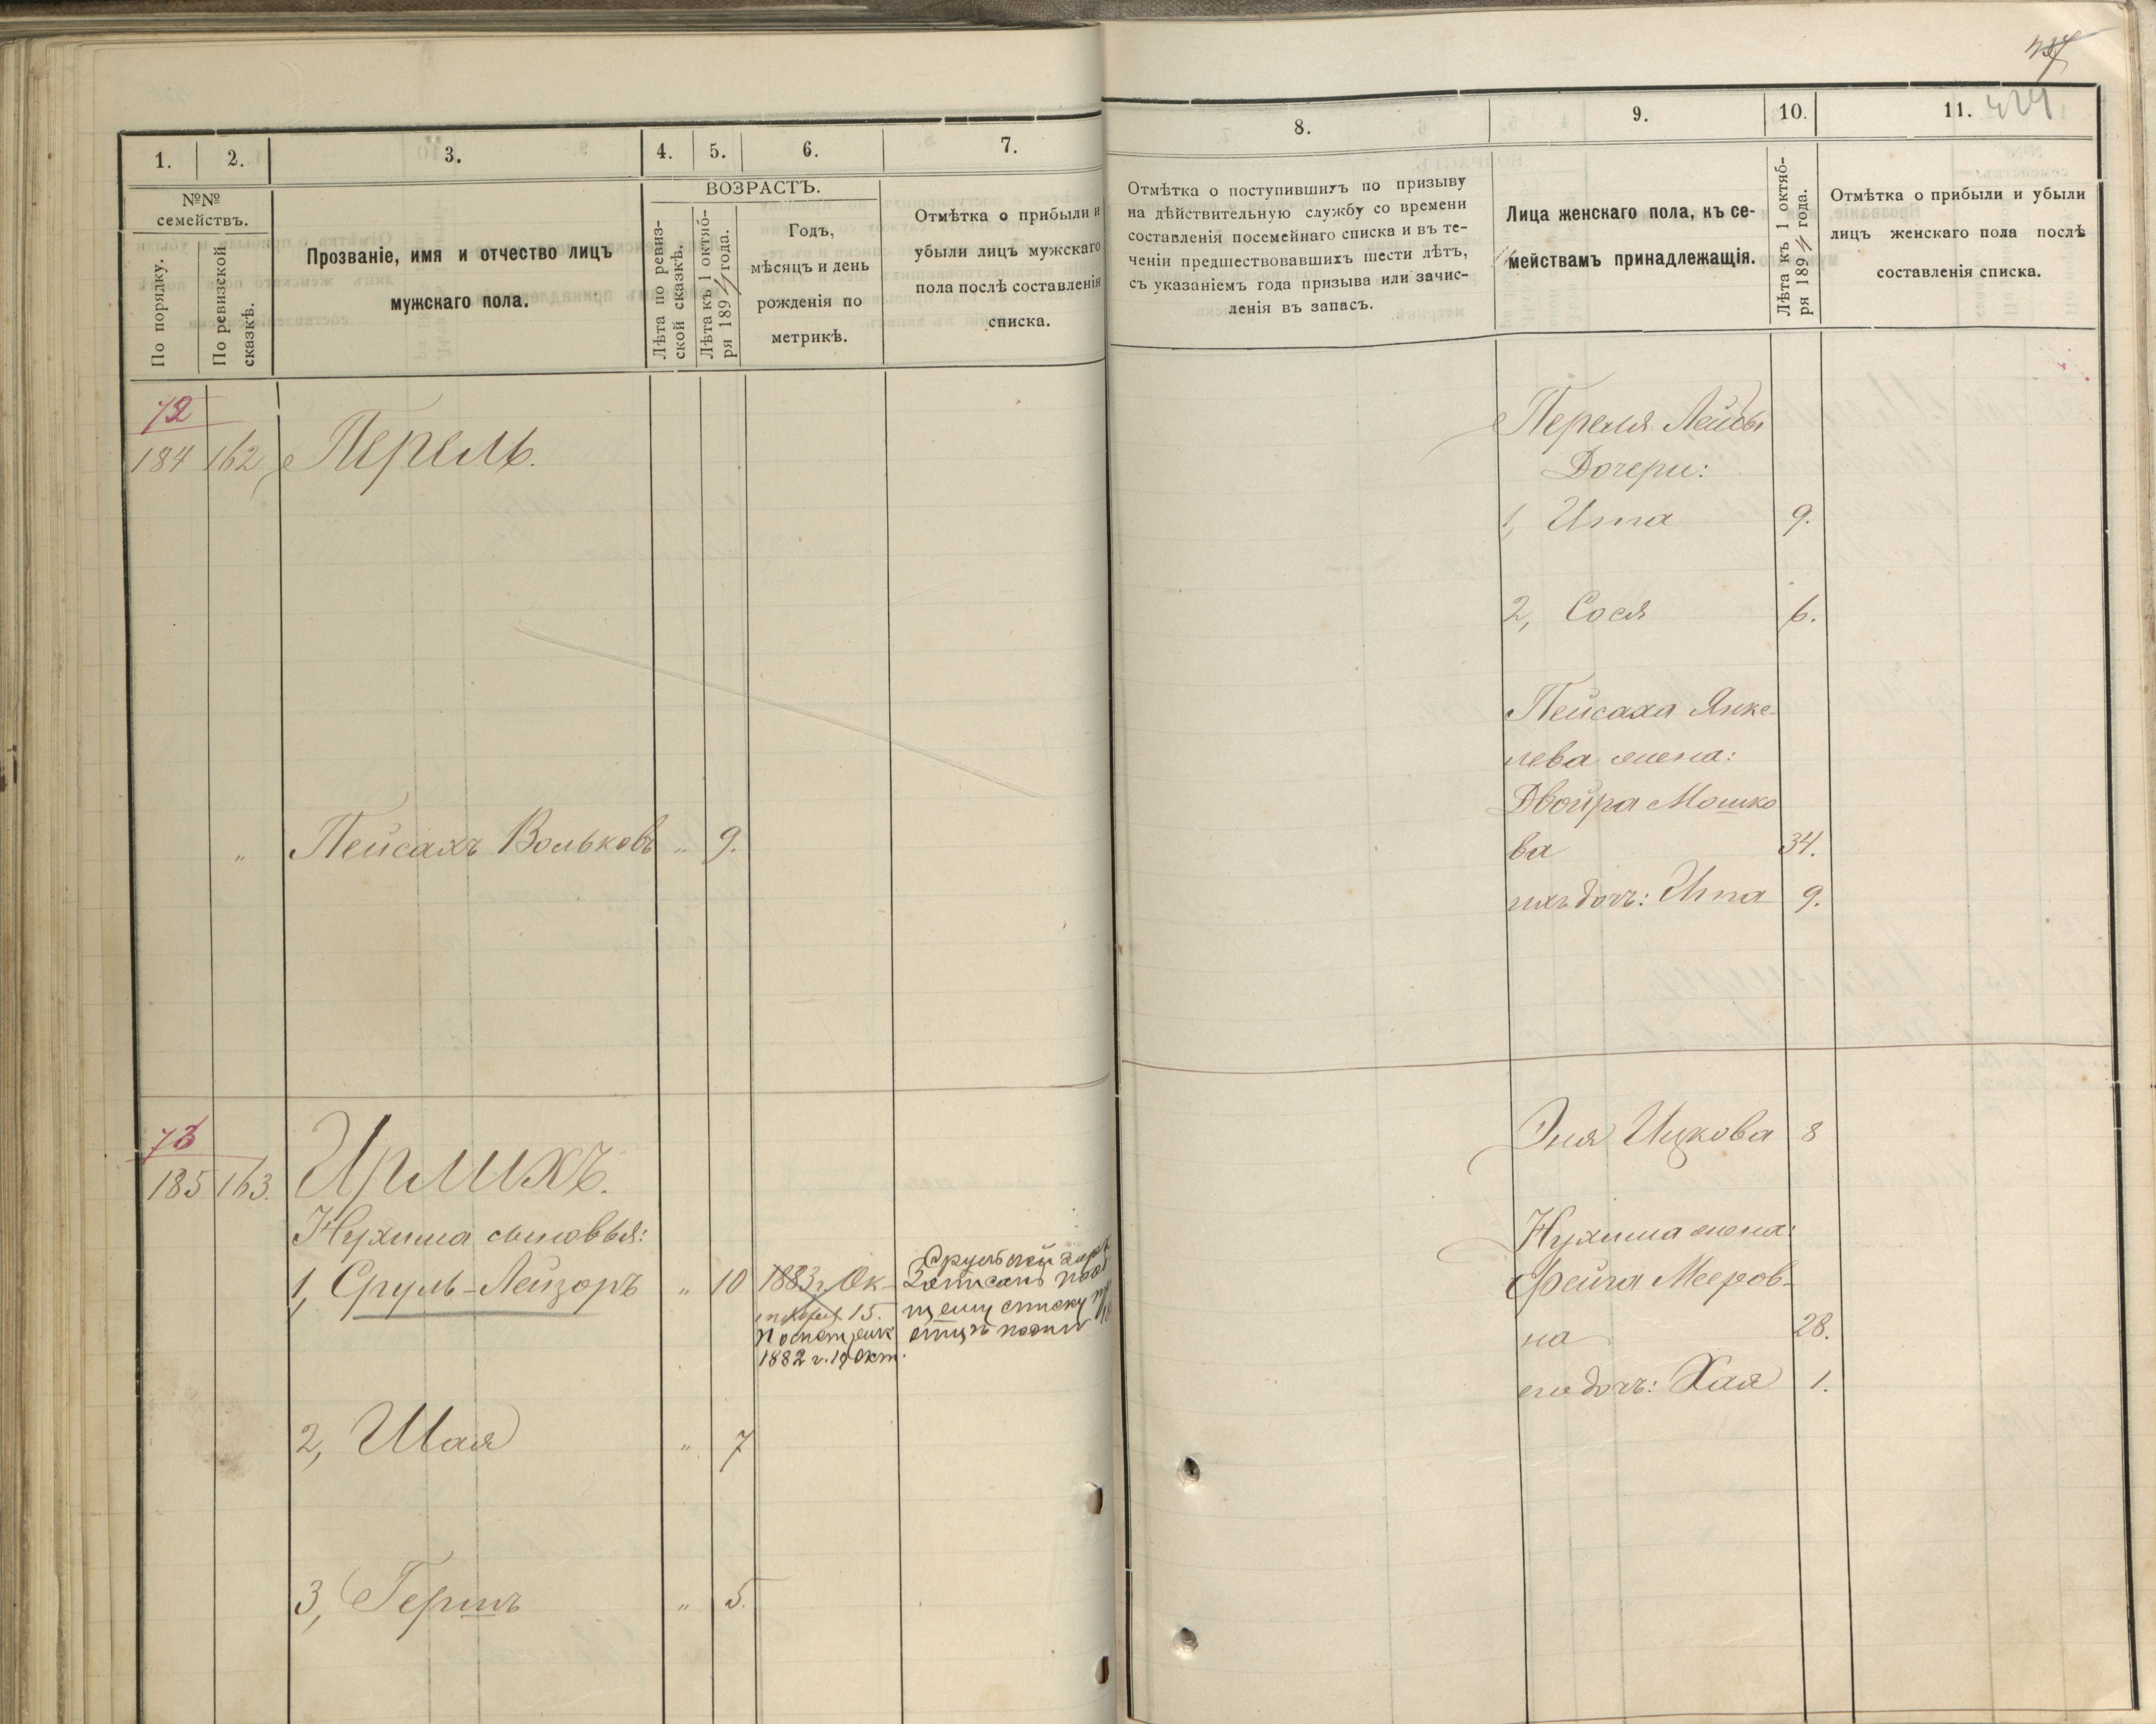 1.
2.
3.
4.
5.
6.
7.
№№
семействъ.
По порядку.
По ревизской
сказкѣ.
Прозваніе, имя и отчество лицъ
мужскаго пола.
ВОЗРАСТЪ.
Лѣта по ревиз-
ской сказкѣ.
Лѣта къ 1 октяб-
ря 189 года.
Годъ,
мѣсяцъ и день
рожденія по
метрикѣ.
Отмѣтка о прибыли и
убыли лицъ мужскаго
пола послѣ составленія
списка.
72
184 162 Перель.
" Пейсахъ Вольковъ " 9.
73
185 163. Ирлихъ.
Нухима сыновья:
1, Сруль-Лейзоръ " 10 1883 г. Ок-
15.
1882 г. 19 Окт.
Записанъ
списку
2, Шая " 7
3, Гершъ " 5.
8.
9.
10.
11.
Отмѣтка о поступившихъ по призыву
на дѣйствительную службу со времени
составленія посемейнаго списка и въ те-
ченіи предшествовавшихъ шести лѣтъ,
съ указаніемъ года призыва или зачис-
ленія въ запасъ.
Лица женскаго пола, къ се-
мействамъ принадлежащія.
Лѣта къ 1 октяб-
ря 189 года.
Отмѣтка о прибыли и убыли
лицъ женскаго пола послѣ
составленія списка.
Переля Лейбы
Дочери:
1, Ита 9.
2, Сося 6.
Пейсаха Янке-
лева жена:
Двойра Мошко
ва 34.
ихъ дочь: Ита 9.
Эня Ицкова 8
Нухима жена:
Фейга Мееров-
на 28.
его дочь: Хая 1.